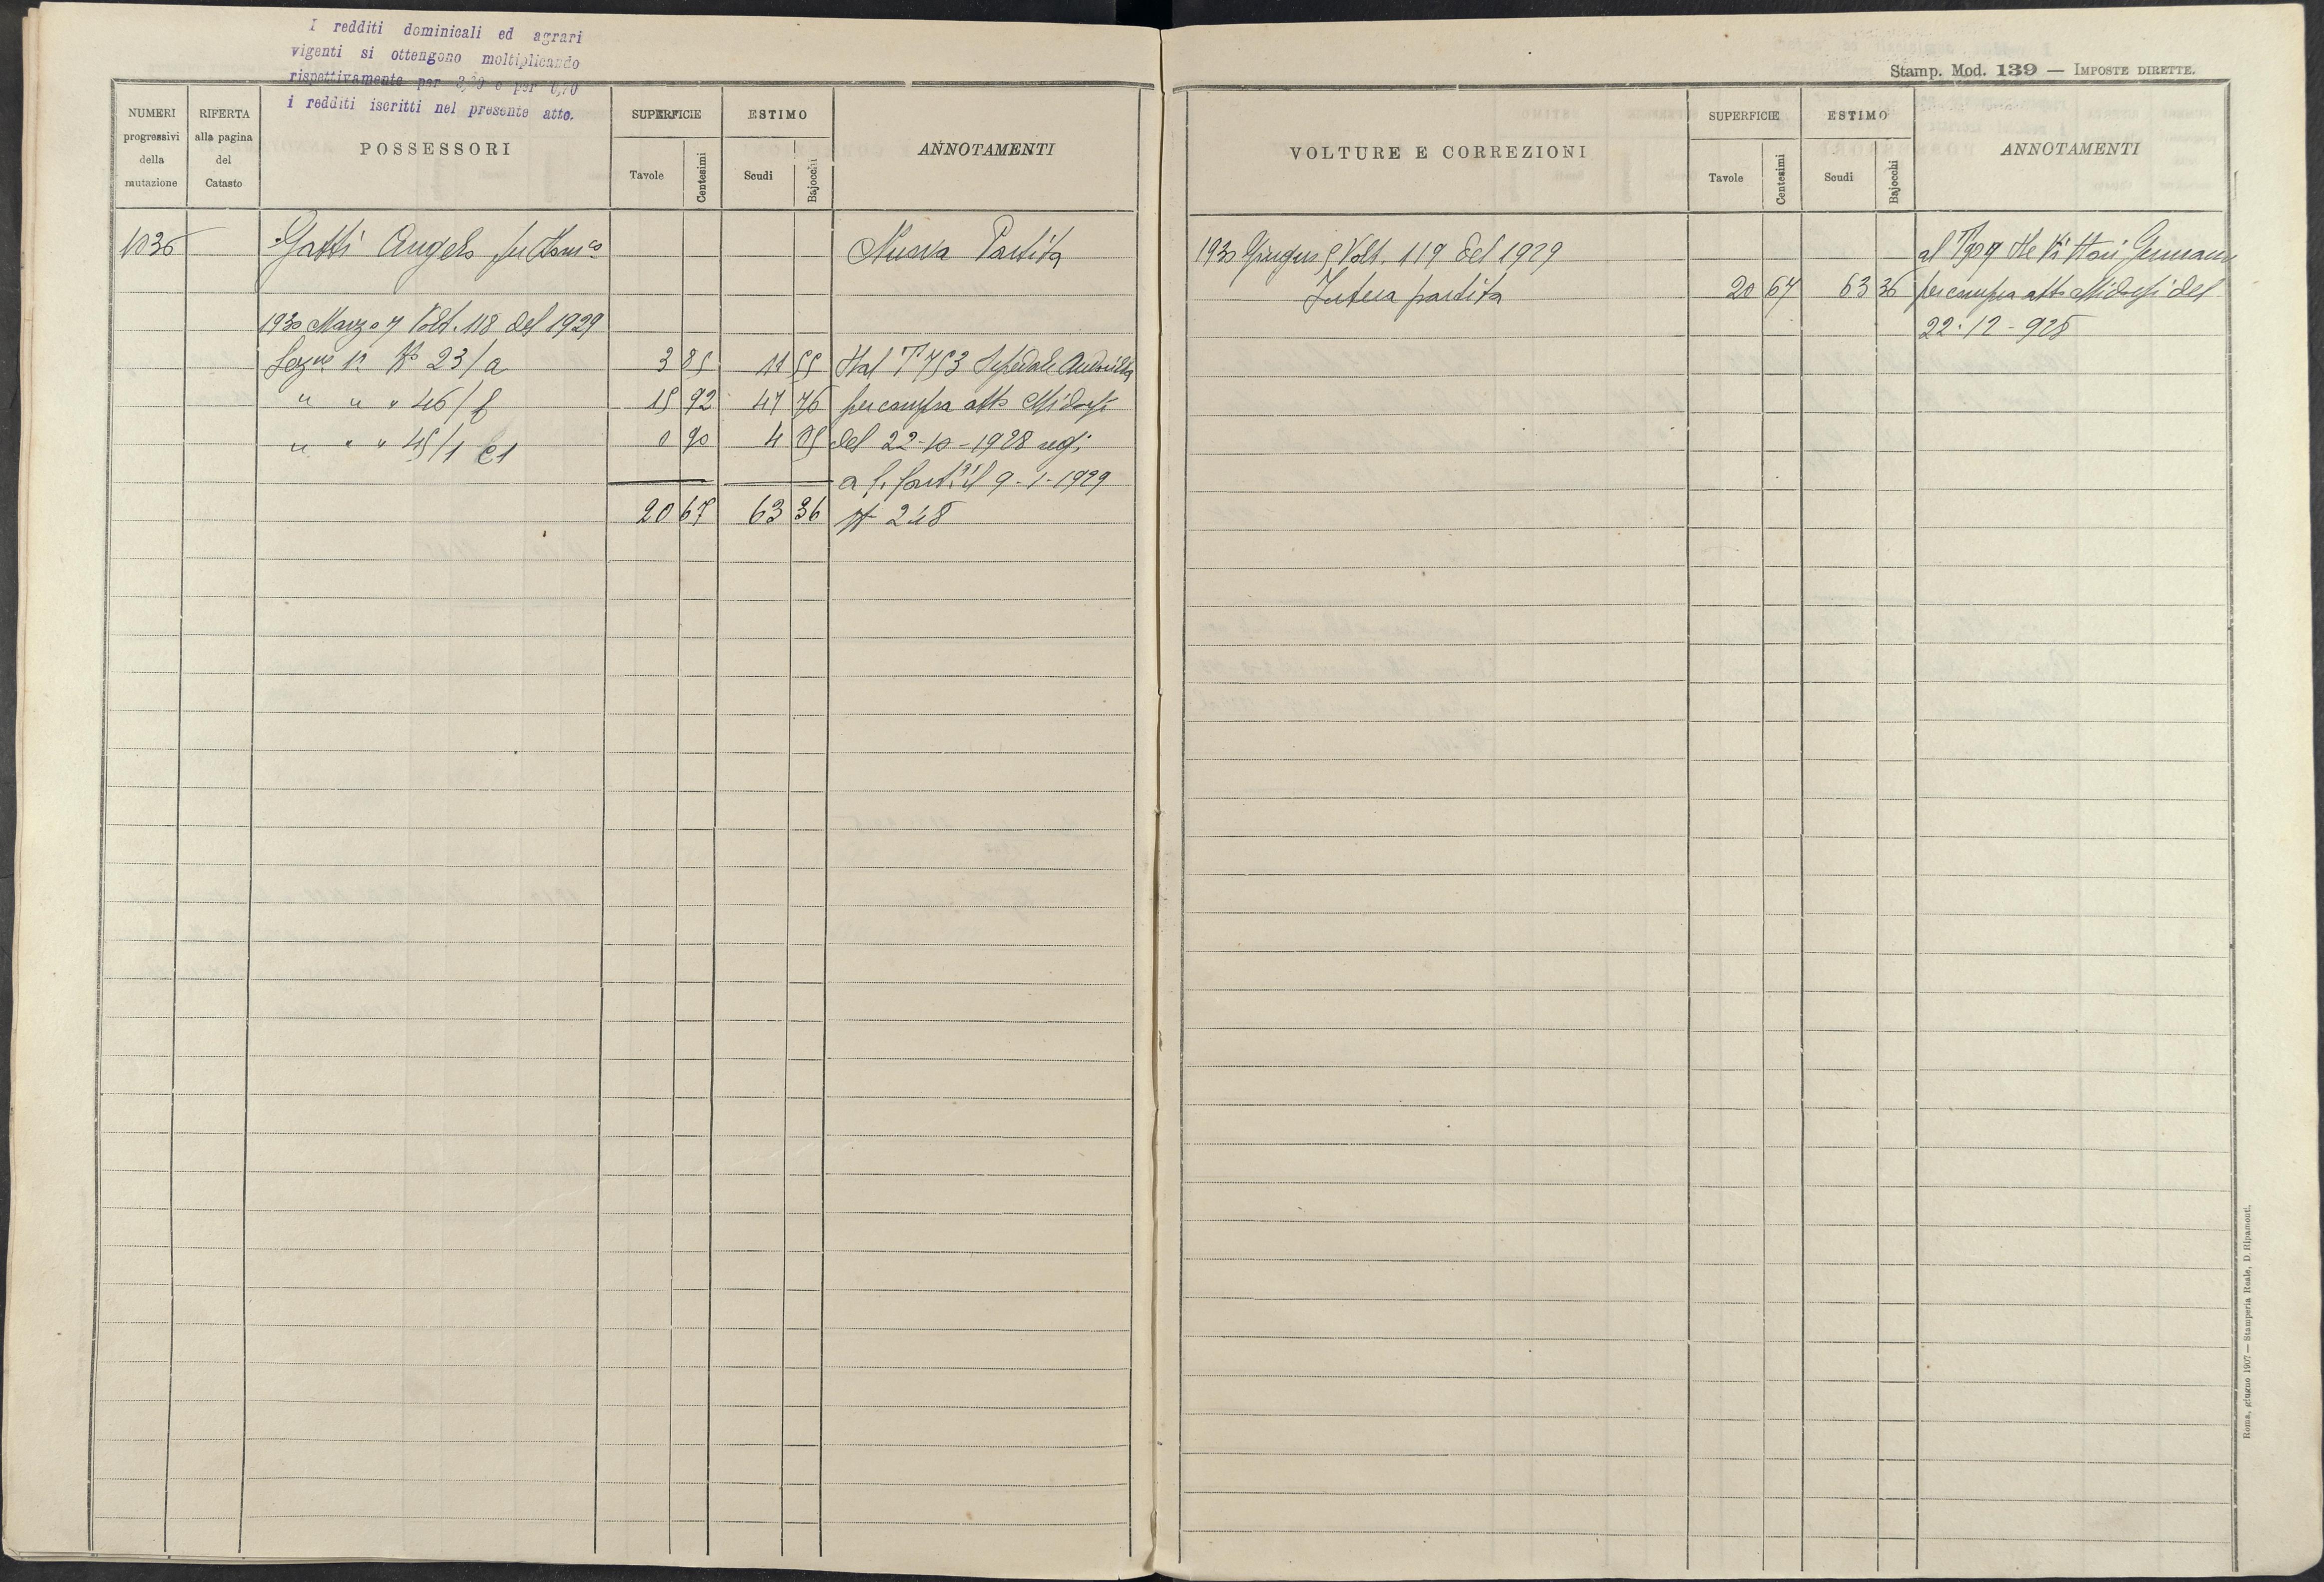 I redditi dominicali ed agrari
vigenti si ottengono moltiplicando
rispettivamente per e per 0,70
i redditi iscritti nel presente atto.
NUMERI progressivi della mutazione
RIFERTA alla pagina del Catasto
POSSESSORI
SUPERFICIE
Tavole
Centesimi
ESTIMO
Scudi
Bajocchi
ANNOTAMENTI
Gatti Angelo fu Dom.co
Nuova Partita
1930 Marzo 7 Volt. 118 del 1929
Sez.ne N° 23/a 3 85 11 55 Dal T 753
" " " 46/f 15 92 47 76 per compra atto
" " " 45/1 c1 0 90 4 05 del 22-10-1928
il 9-1-1929
20 67 63 36 N 248
Stamp. Mod. 139 — IMPOSTE DIRETTE.
VOLTURE E CORREZIONI
SUPERFICIE
Tavole
Centesimi
ESTIMO
Scudi
Bajocchi
ANNOTAMENTI
1930 Giugno 9 Volt. 119 del 1929 al T 909
Intera partita 20 67 63 36 per compra atto del
22-12-928
Roma, giugno 1907 — Stamperia Reale, D. Ripamonti.